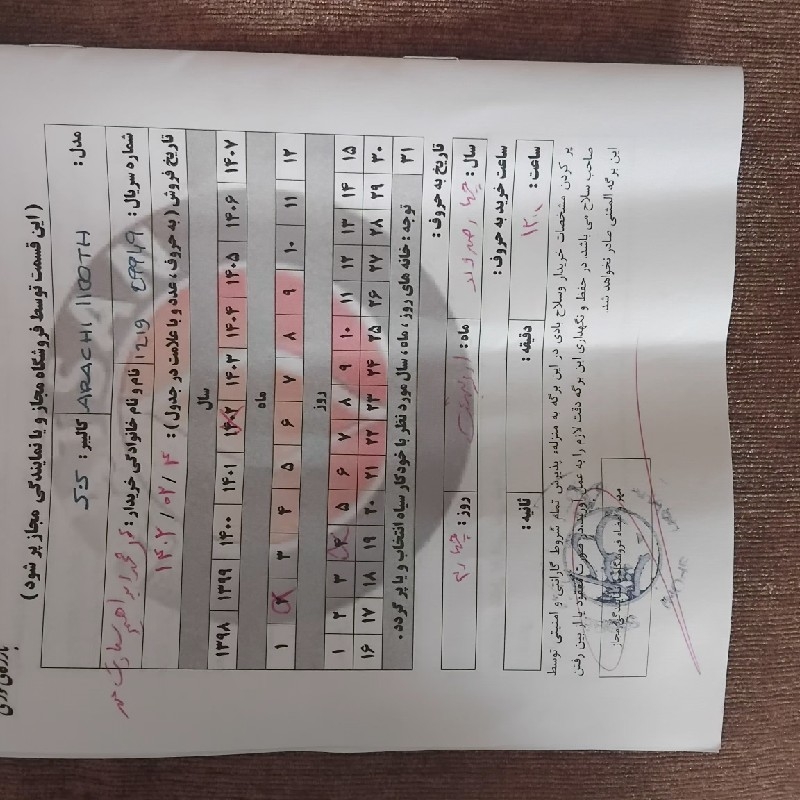 ( این قسمت توسط فروشگاه مجاز و یا نمایندگی مجاز پر شود )
مدل : ARACHI 1100TH کالیبر : 5.5
شماره سریال : نام و نام خانوادگی خریدار :
تاریخ فروش ( به حروف ، عدد و با علامت در جدول ) : ۱۴۰۲ / ۰۲ / ۴
سال
۱۳۹۸ ۱۳۹۹ ۱۴۰۰ ۱۴۰۱ ۱۴۰۲ ۱۴۰۳ ۱۴۰۴ ۱۴۰۵ ۱۴۰۶ ۱۴۰۷
ماه
۱ ۲ ۳ ۴ ۵ ۶ ۷ ۸ ۹ ۱۰ ۱۱ ۱۲
روز
۱ ۲ ۳ ۴ ۵ ۶ ۷ ۸ ۹ ۱۰ ۱۱ ۱۲ ۱۳ ۱۴ ۱۵
۱۶ ۱۷ ۱۸ ۱۹ ۲۰ ۲۱ ۲۲ ۲۳ ۲۴ ۲۵ ۲۶ ۲۷ ۲۸ ۲۹ ۳۰
۳۱ توجه : خانه های روز ، ماه ، سال مورد نظر با خودکار سیاه انتخاب و یا پر گردد .
تاریخ به حروف :
سال : ماه : اردیبهشت روز : چهارم
ساعت خرید به حروف :
ساعت : دقیقه : ثانیه :
پر کردن مشخصات خریدار وسلاح بادی در این برگه به منزله، پذیرش تمام شروط گارانتی و امنیتی توسط
صاحب سلاح می باشد. در حفظ و نگهداری این برگه دقت لازم را به عمل آورید.در صورت مفقود یا از بین رفتن
این برگه المثنی صادر نخواهد شد.
مهر و امضاء فروشگاه یا نمایندگی مجاز